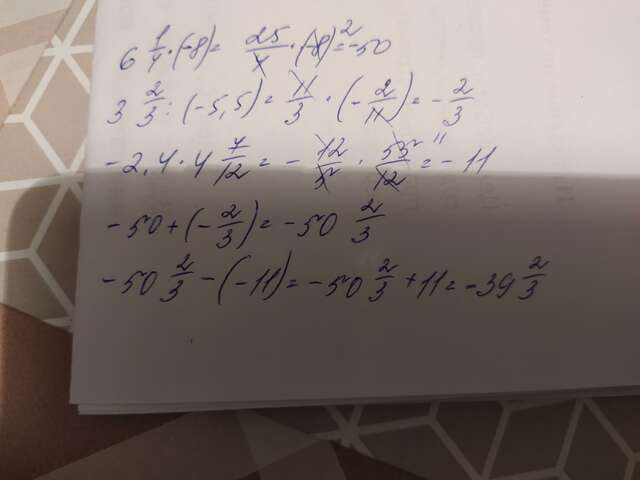 6 1/4 · (-8) = 25/4 · (-8)² = -50
3 2/3 : (-5,5) = 11/3 · (-2/11) = -2/3
-2,4 · 4 7/12 = -12/5 · 55/12 ¹¹ = -11
-50 + (-2/3) = -50 2/3
-50 2/3 - (-11) = -50 2/3 + 11 = -39 2/3